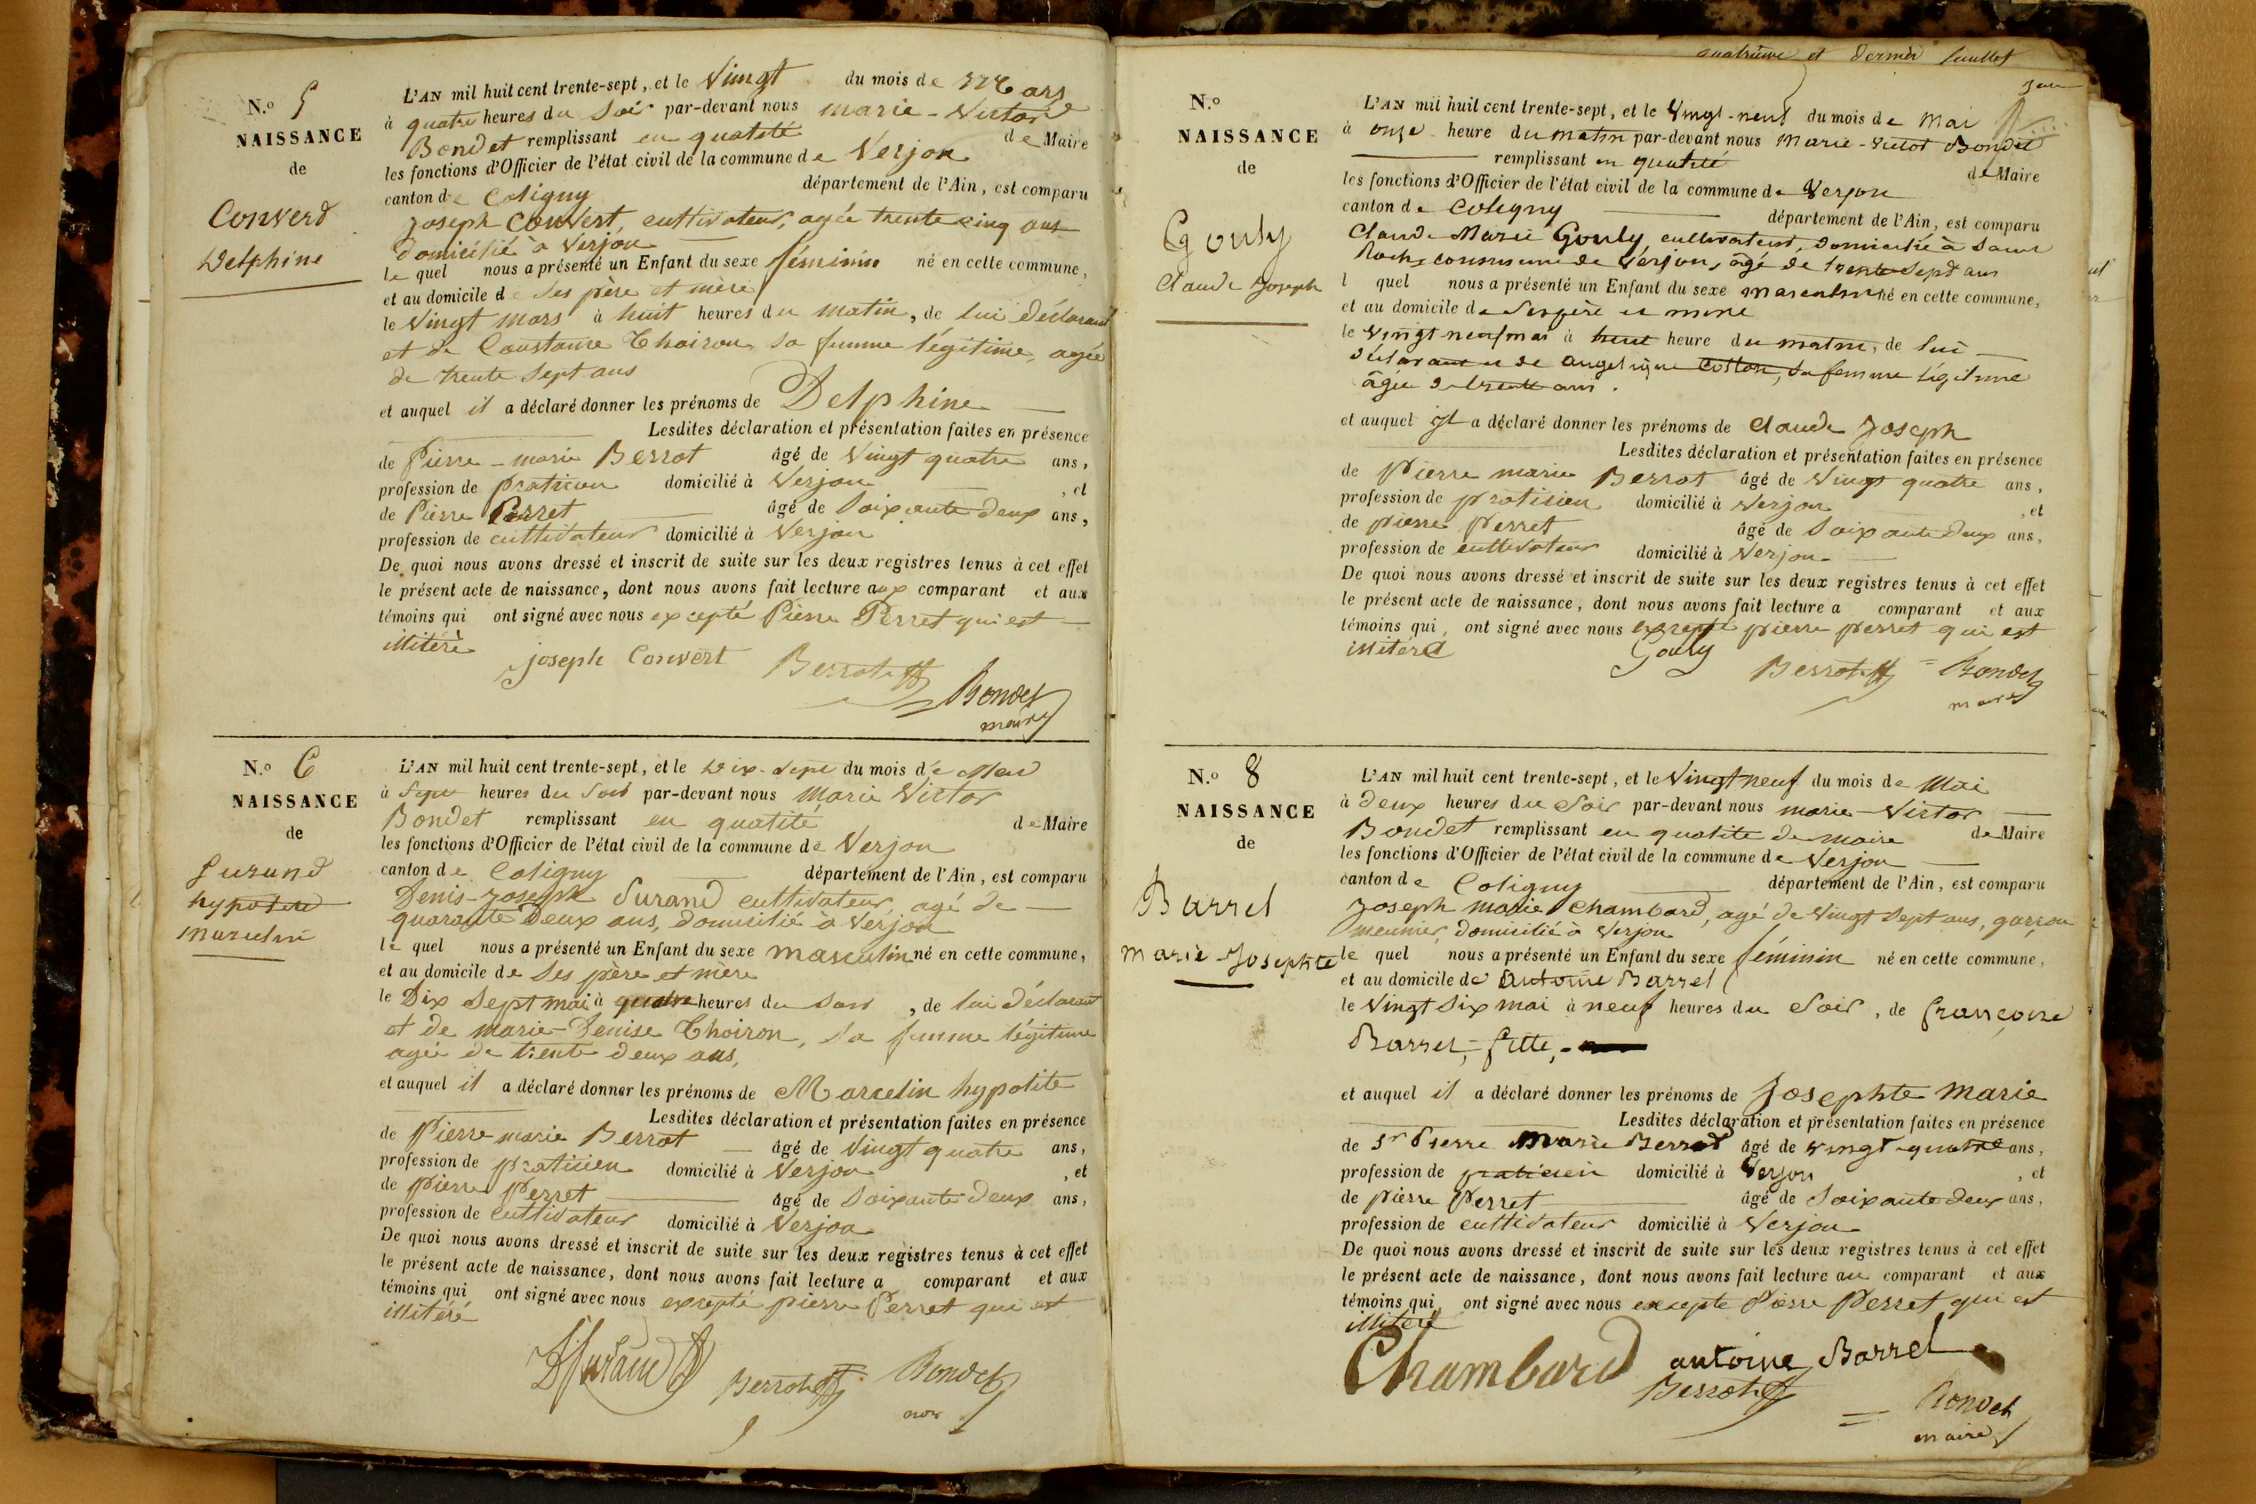 N.o 5
NAISSANCE
de
Converd
Delphine
L'AN mil huit cent trente-sept, et le Vingt du mois de Mars
à quatre heures du Soir par-devant nous marie-Victor
Bondet remplissant en qualité de Maire
les fonctions d'Officier de l'état civil de la commune de Verjon
canton de Coligny département de l'Ain, est comparu
Joseph Convert, cultivateur, agée trente cinq ans
domicilié à Verjon
le quel nous a présenté un Enfant du sexe féminin né en cette commune,
et au domicile de Ses père et mère
le Vingt mars à huit heures du matin, de lui déclarant
et de Constance Thoiron sa femme légitime, agée
de trente Sept ans
et auquel il a déclaré donner les prénoms de Delphine
Lesdites déclaration et présentation faites en présence
de Pierre-marie Berrot âgé de Vingt quatre ans,
profession de praticien domicilié à Verjon, et
de Pierre Perret âgé de Soixante deux ans,
profession de cultivateur domicilié à Verjon
De quoi nous avons dressé et inscrit de suite sur les deux registres tenus à cet effet
le présent acte de naissance, dont nous avons fait lecture aux comparant et aux
témoins qui ont signé avec nous excepté Pierre Perret qui est
illitéré
joseph Convert Berrot Bondet
maire
N.o 6
NAISSANCE
de
Durand
hypolite
Marcelin
L'AN mil huit cent trente-sept, et le Dix-Sept du mois de Mai
à Sept heures du Soir par-devant nous Marie Victor
Bondet remplissant en qualité de Maire
les fonctions d'Officier de l'état civil de la commune de Verjon
canton de Coligny département de l'Ain, est comparu
Denis-Joseph Durand cultivateur, agé de
quarante Deux ans, domicilié à Verjon
le quel nous a présenté un Enfant du sexe masculin né en cette commune,
et au domicile de Ses père et mère
le Dix Sept mai à quatre heures du Soir, de lui déclarant
et de marie-Denise Thoiron, sa femme légitime
agée de trente deux ans,
et auquel il a déclaré donner les prénoms de Marcelin hypolite
Lesdites déclaration et présentation faites en présence
de Pierre marie Berrot âgé de Vingt quatre ans,
profession de praticien domicilié à Verjon, et
de pierre Perret âgé de Soixante Deux ans,
profession de cultivateur domicilié à Verjon
De quoi nous avons dressé et inscrit de suite sur les deux registres tenus à cet effet
le présent acte de naissance, dont nous avons fait lecture a comparant et aux
témoins qui ont signé avec nous excepté pierre Perret qui est
illitéré
Durand Berrot Bondet
quatrième et dernier feuillet
N.o
NAISSANCE
de
Gouly
Claude Joseph
L'AN mil huit cent trente-sept, et le Vingt-neuf du mois de Mai
à onze heure du matin par-devant nous Marie-Victor Bondet
remplissant en qualité de Maire
les fonctions d'Officier de l'état civil de la commune de Verjon
canton de Coligny département de l'Ain, est comparu
Claude Marie Gouly, cultivateur, domicilié à Saint
Roch, commune de Verjon, âgé de trente Sept ans
l quel nous a présenté un Enfant du sexe masculin né en cette commune,
et au domicile de Ses père et mère
le Vingt neuf mai à huit heure du matin, de lui
déclarant et de angélique Cotton, Sa femme légitime
âgée de trente ans.
et auquel il a déclaré donner les prénoms de Claude Joseph
Lesdites déclaration et présentation faites en présence
de Pierre marie Berrot âgé de Vingt quatre ans,
profession de praticien domicilié à Verjon, et
de pierre Perret âgé de Soixante Deux ans,
profession de cultivateur domicilié à Verjon
De quoi nous avons dressé et inscrit de suite sur les deux registres tenus à cet effet
le présent acte de naissance, dont nous avons fait lecture a comparant et aux
témoins qui, ont signé avec nous excepté pierre perret qui est
illitéré
Gouly Berrot Bondet
maire
N.o 8
NAISSANCE
de
Barrel
Marie-Josephte
L'AN mil huit cent trente-sept, et le Vingt neuf du mois de Mai
à Deux heures du Soir par-devant nous marie-Victor
Bondet remplissant en qualité de maire de Maire
les fonctions d'Officier de l'état civil de la commune de Verjon
canton de Coligny département de l'Ain, est comparu
Joseph Marie Chambard, agé de Vingt Sept ans, garson
meunier, domicilié à Verjon
le quel nous a présenté un Enfant du sexe féminin né en cette commune,
et au domicile de Antoine Barrel
le Vingt Six mai à neuf heures du Soir, de françoise
Barrel, fille,
et auquel il a déclaré donner les prénoms de Josephte Marie
Lesdites déclaration et présentation faites en présence
de Sr Pierre Marie Berrod âgé de vingt-quatre ans,
profession de praticien domicilié à Verjon, et
de pierre Perret âgé de Soixante deux ans,
profession de cultivateur domicilié à Verjon
De quoi nous avons dressé et inscrit de suite sur les deux registres tenus à cet effet
le présent acte de naissance, dont nous avons fait lecture au comparant et aux
témoins qui, ont signé avec nous excepte Pierre Perret qui est
illitéré
Chambard antoine Barrel
Berrot Bondet
maire